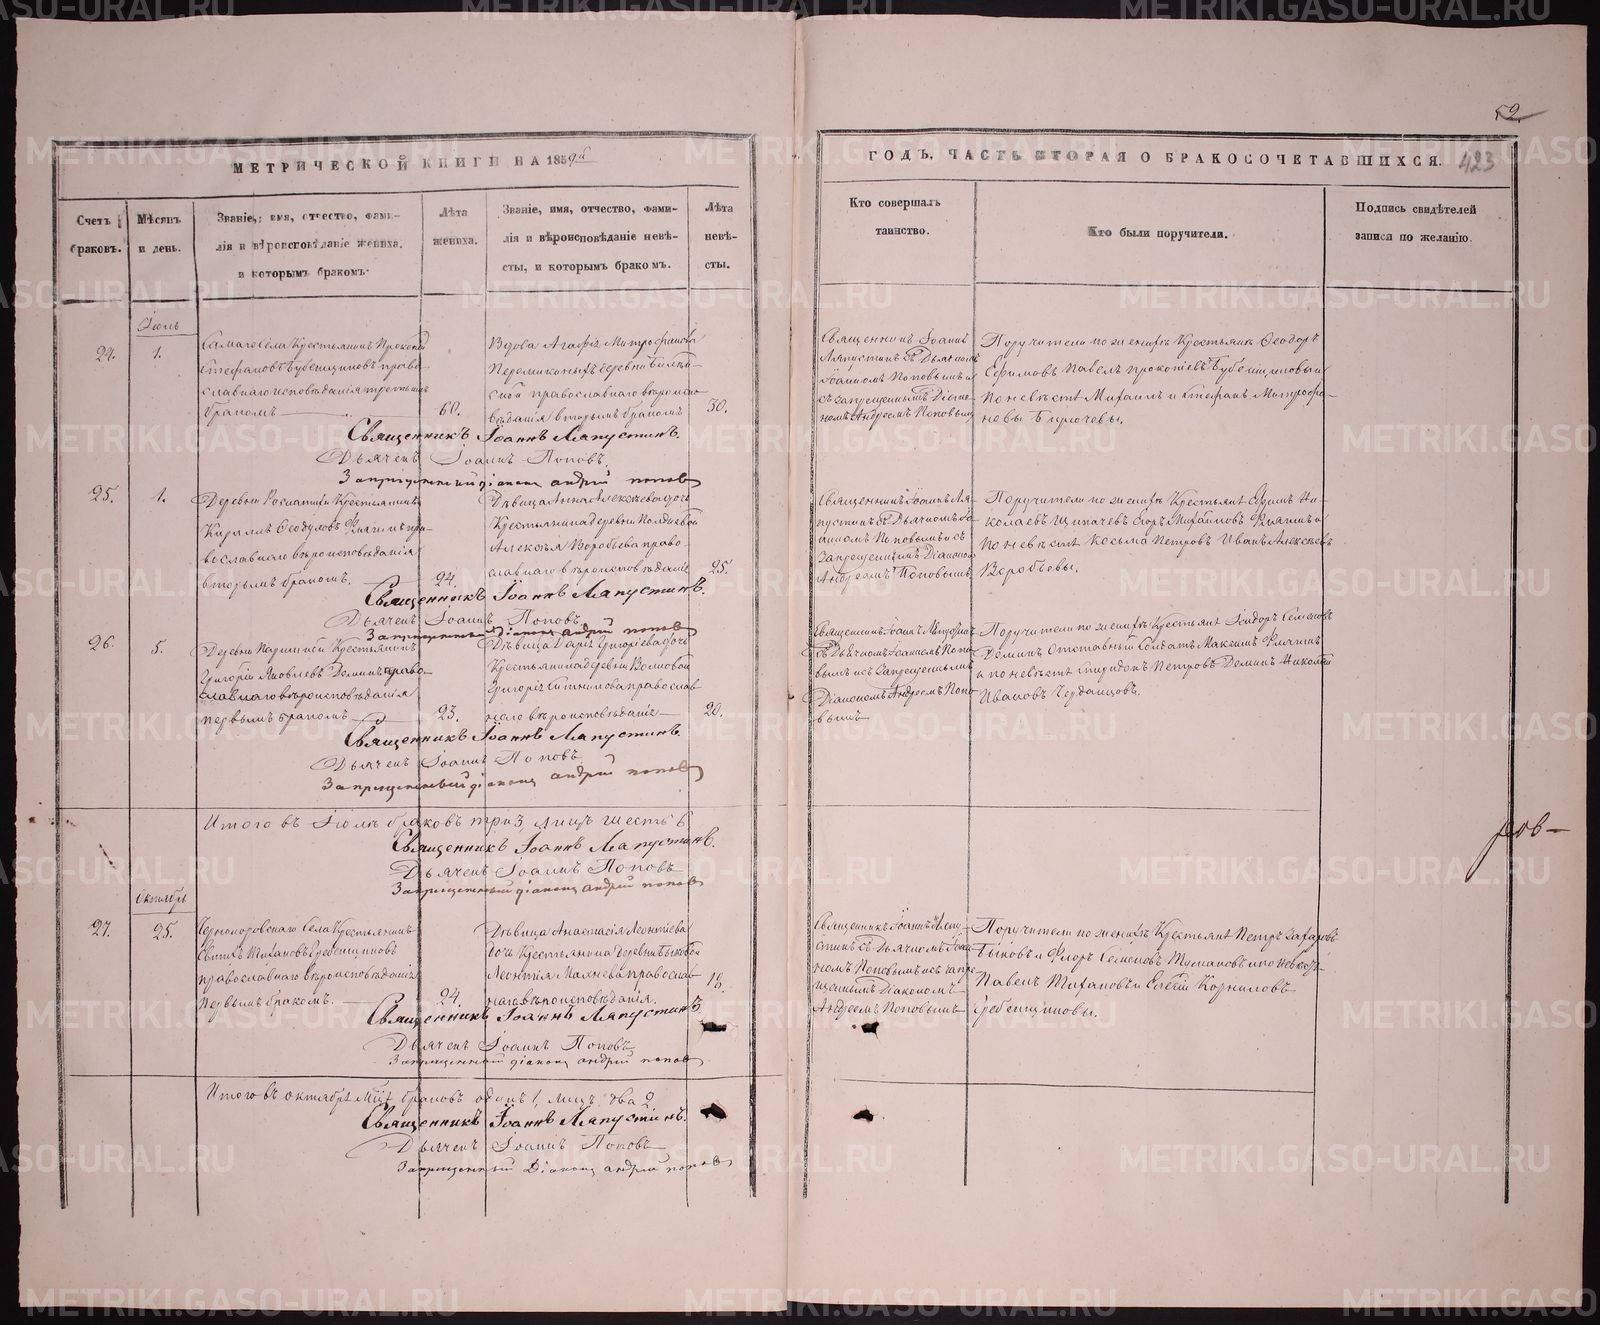 52
МЕТРИЧЕСКОЙ КНИГИ НА 1859й
ГОДЪ, ЧАСТЬ ВТОРАЯ О БРАКОСОЧЕТАВШИХСЯ.
423
Счетъ браковъ.
Мѣсяцъ и день.
Званіе, имя, отчество, фами-
лія и вѣроисповѣданіе жениха.
и которымъ бракомъ.
Лѣта
жениха.
Званіе, имя, отчество, фами-
лія и вѣроисповѣданіе невѣ-
сты, и которымъ бракомъ.
Лѣта
невѣ-
сты.
Кто совершалъ
таинство.
Кто были поручители.
Подпись свидѣтелей
записи по желанію.
Іюль
24.
1.
Самаго села Крестьянинъ Прокопій
Стефановъ Бубенщиковъ право-
славнаго исповѣданія третьимъ
бракомъ
60.
Вдова Агафія Митрофанова
деревни
православнаго вѣроиспо-
вѣданія вторымъ бракомъ
30.
Священникъ Іоаннъ
Ляпустинъ съ Дьячкомъ
Іоанномъ Поповымъ и
съ запрещеннымъ Діако-
номъ Андреемъ Поповымъ
Поручители по женихѣ Крестьяне Ѳеодоръ
Ефимовъ Павелъ Прокопіевъ Бубенщиковы
по невѣстѣ Михаилъ и Стефанъ Митрофа-
новы
Священникъ Іоаннъ Ляпустинъ.
Дьячекъ Іоаннъ Поповъ.
Запрещенный діаконъ андрей поповъ
25.
1.
Деревни Крестьянинъ
Кириллъ Ѳеодуловъ пра-
вославнаго вѣроисповѣданія
вторымъ бракомъ.
24.
Дѣвица Анна Алексѣева дочь
Крестьянина деревни Полдневой
Алексѣя Воробьева право-
славнаго вѣроисповѣданія
25.
Священникъ Іоаннъ Ля-
пустинъ съ Дьячкомъ Іо-
анномъ Поповымъ и съ
Запрещеннымъ Діакономъ
Андреемъ Поповымъ
Поручители по женихѣ Крестьяне Ефимъ Ни-
колаевъ Щипачевъ Егоръ Михайловъ
по невѣстѣ Козьма Петровъ Иванъ Алексѣевъ
Воробьевы.
Священникъ Іоаннъ Ляпустинъ.
Дьячекъ Іоаннъ Поповъ.
Запрещенный діаконъ андрей поповъ
26.
5.
Деревни Паршиной Крестьянинъ
Григорій Яковлевъ Деминъ право-
славнаго вѣроисповѣданія
первымъ бракомъ
23.
Дѣвица Дарія Григоріева дочь
Крестьянина деревни Волковой
Григорія Ситникова православ-
наго вѣроисповѣданія
20.
Священникъ Іоаннъ Ляпустинъ
съ Дьячкомъ Іоанномъ Попо-
вымъ и съ Запрещеннымъ
Діакономъ Андреемъ Попо-
вымъ
Поручители по женихѣ Крестьяне Ѳеодоръ Семеновъ
Деминъ Отставный Солдатъ Максимъ
а по невѣстѣ Спиридонъ Петровъ Деминъ Николай
Ивановъ Черданцовъ.
Священникъ Іоаннъ Ляпустинъ.
Дьячекъ Іоаннъ Поповъ
Запрещенный діаконъ андрей поповъ
Итого въ Іюлѣ браковъ три 3, лицъ шесть 6
Священникъ Іоаннъ Ляпустинъ.
Дьячекъ Іоаннъ Поповъ
Запрещенный діаконъ андрей поповъ
Октябрь
27.
25.
Черноморовскаго села Крестьянинъ
Гребенщиковъ
православнаго вѣроисповѣданія
первымъ бракомъ.
24.
Дѣвица Анастасія Леонтіева
дочь Крестьянина деревни Быковой
Леонтія Махнева православ-
наго вѣроисповѣданія.
18.
Священникъ Іоаннъ Ляпу-
стинъ съ Дьячкомъ Іоан-
номъ Поповымъ и съ запре-
щеннымъ Діакономъ
Андреемъ Поповымъ
Поручители по женихѣ Крестьяне Петръ Захаровъ
Быковъ и Флоръ Семеновъ и по невѣстѣ
Павелъ и Евсей Корниловъ
Гребенщиковы.
Священникъ Іоаннъ Ляпустинъ
Дьячекъ Іоаннъ Поповъ
Запрещенный діаконъ андрей поповъ
Итого въ октябрѣ мцѣ браковъ одинъ 1, лицъ два 2
Священникъ Іоаннъ Ляпустинъ.
Дьячекъ Іоаннъ Поповъ
Запрещенный Діаконъ андрей поповъ
METRIKI.GASO-URAL.RU